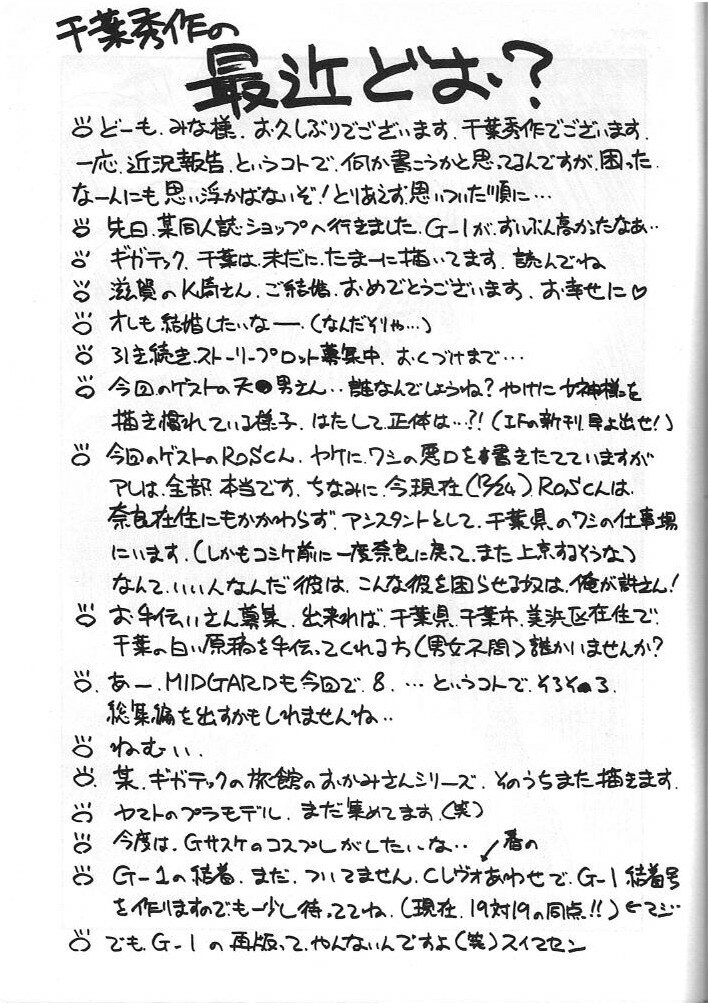 千葉秀作の
最近どお?
どーも、みな様、お久しぶりでございます、千葉秀作でございます、
一応、近況報告、というコトで、何か書こうかと思ってるんですが、困った
なーんにも思い浮かばないぞ!とりあえず思いついた順に…
先日、某同人誌ショップへ行きました、G-1が、ずいぶん高かったなあ…
ギガテック、千葉は、未だに、たまーに描いてます、読んでね
滋賀のK崎さん、ご結婚、おめでとうございます、お幸せに♡
オレも結婚したいなー、(なんだそりゃ…)
引き続き、ストーリープロット募集中、おくづけまで…
今回のゲストの天●男さん、誰なんでしょうね?やけに女神様を
描き慣れている様子、はたして、正体は…?!(IFの新刊、早よ出せ!)
今回のゲストのROSくん、ヤケに、ワシの悪口を書きたてていますが
アレは、全部、本当です、ちなみに、今現在(12/24)、ROSくんは、
奈良在住にもかかわらず、アシスタントとして、千葉県のワシの仕事場
にいます、(しかもコミケ前に一度奈良に戻って、また上京するそうな)
なんて、いい人なんだ彼は、こんな彼を困らせる奴は、俺が許さん!
お手伝いさん募集、出来れば、千葉県、千葉市、美浜区在住で、
千葉の白い原稿を手伝ってくれる方(男女不問)誰かいませんか?
あー、MIDGARDも今回で、8、…というコトで、そろそろ、
総集編を出すかもしれませんね…
ねむい、
某、ギガテックの旅館のおかみさんシリーズ、そのうちまた描きます、
ヤマトのプラモデル、まだ集めてます、(笑)
今度は、Gサスケのコスプレがしたいな…
春の
G-1の結着、まだ、ついてません、Cレヴォあわせで、G-1結着号
を作りますのでも一少し待っててね、(現在、19対19の同点!!)←マジ…
でも、G-1の再版って、やんないんですよ(笑)スイマセン